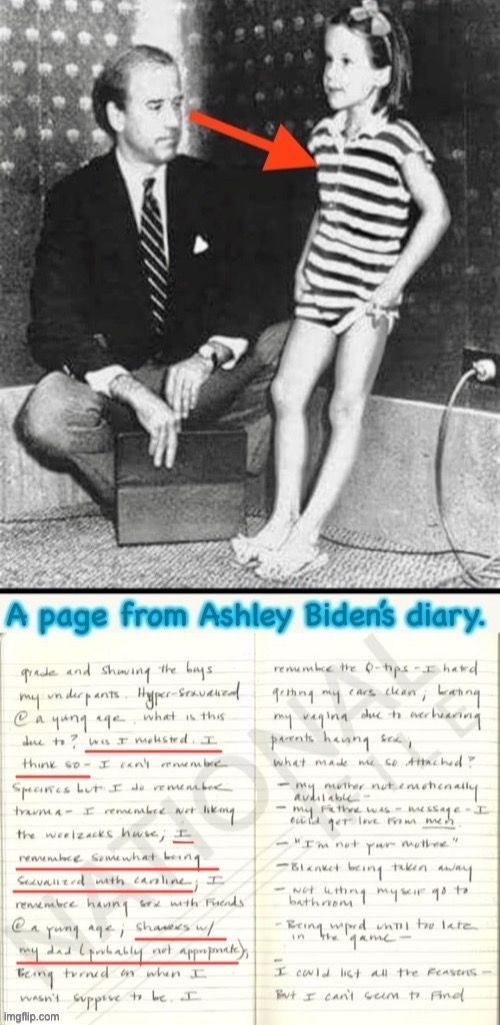 A page from Ashley Biden's diary.
grade and showing the boys
my underpants. Hyper-sexualized
@ a young age. what is this
due to? was I molested. I
think so - I can't remember
specifics but I do remember
trauma - I remember not liking
the woolzacks house; I
remember somewhat being
sexualized with caroline; I
remember having sex with friends
@ a young age; showers w/
my dad (probably not appropriate),
Being turned on when I
wasn't suppose to be. I
remember the Q-tips - I hated
getting my ears clean;
my vagina due to overhearing
parents having sex;
what made me so Attached?
- my mother not emotionally
available -
- my Father was - message - I
could get love from men.
- "I'm not your mother"
- Blanket being taken away
- Not letting myself go to
bathroom
- Being wiped until too late
in the game -
-
I could list all the reasons -
But I can't seem to find
NATIONAL FILE
imgflip.com